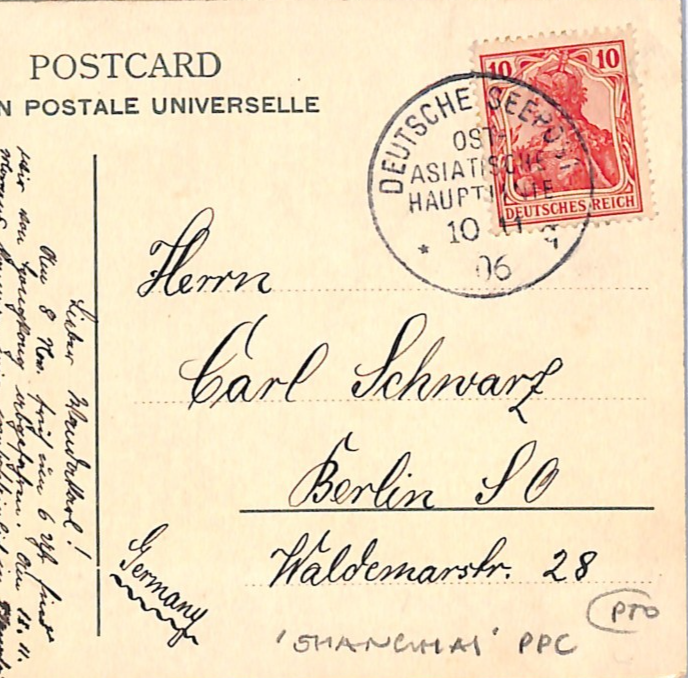 POSTCARD
N POSTALE UNIVERSELLE
10 10
DEUTSCHES REICH
DEUTSCHE SEEPOST
OST-
ASIATISCHE
HAUPTLINIE
10 11
06
Herrn
Carl Schwarz
Berlin SO
Waldemarstr. 28
Germany
Lieber
Am 8 Nov. früh um 6 Uhr sind
wir von Hongkong abgefahren. Am
'SHANGHAI' PPC
PTO